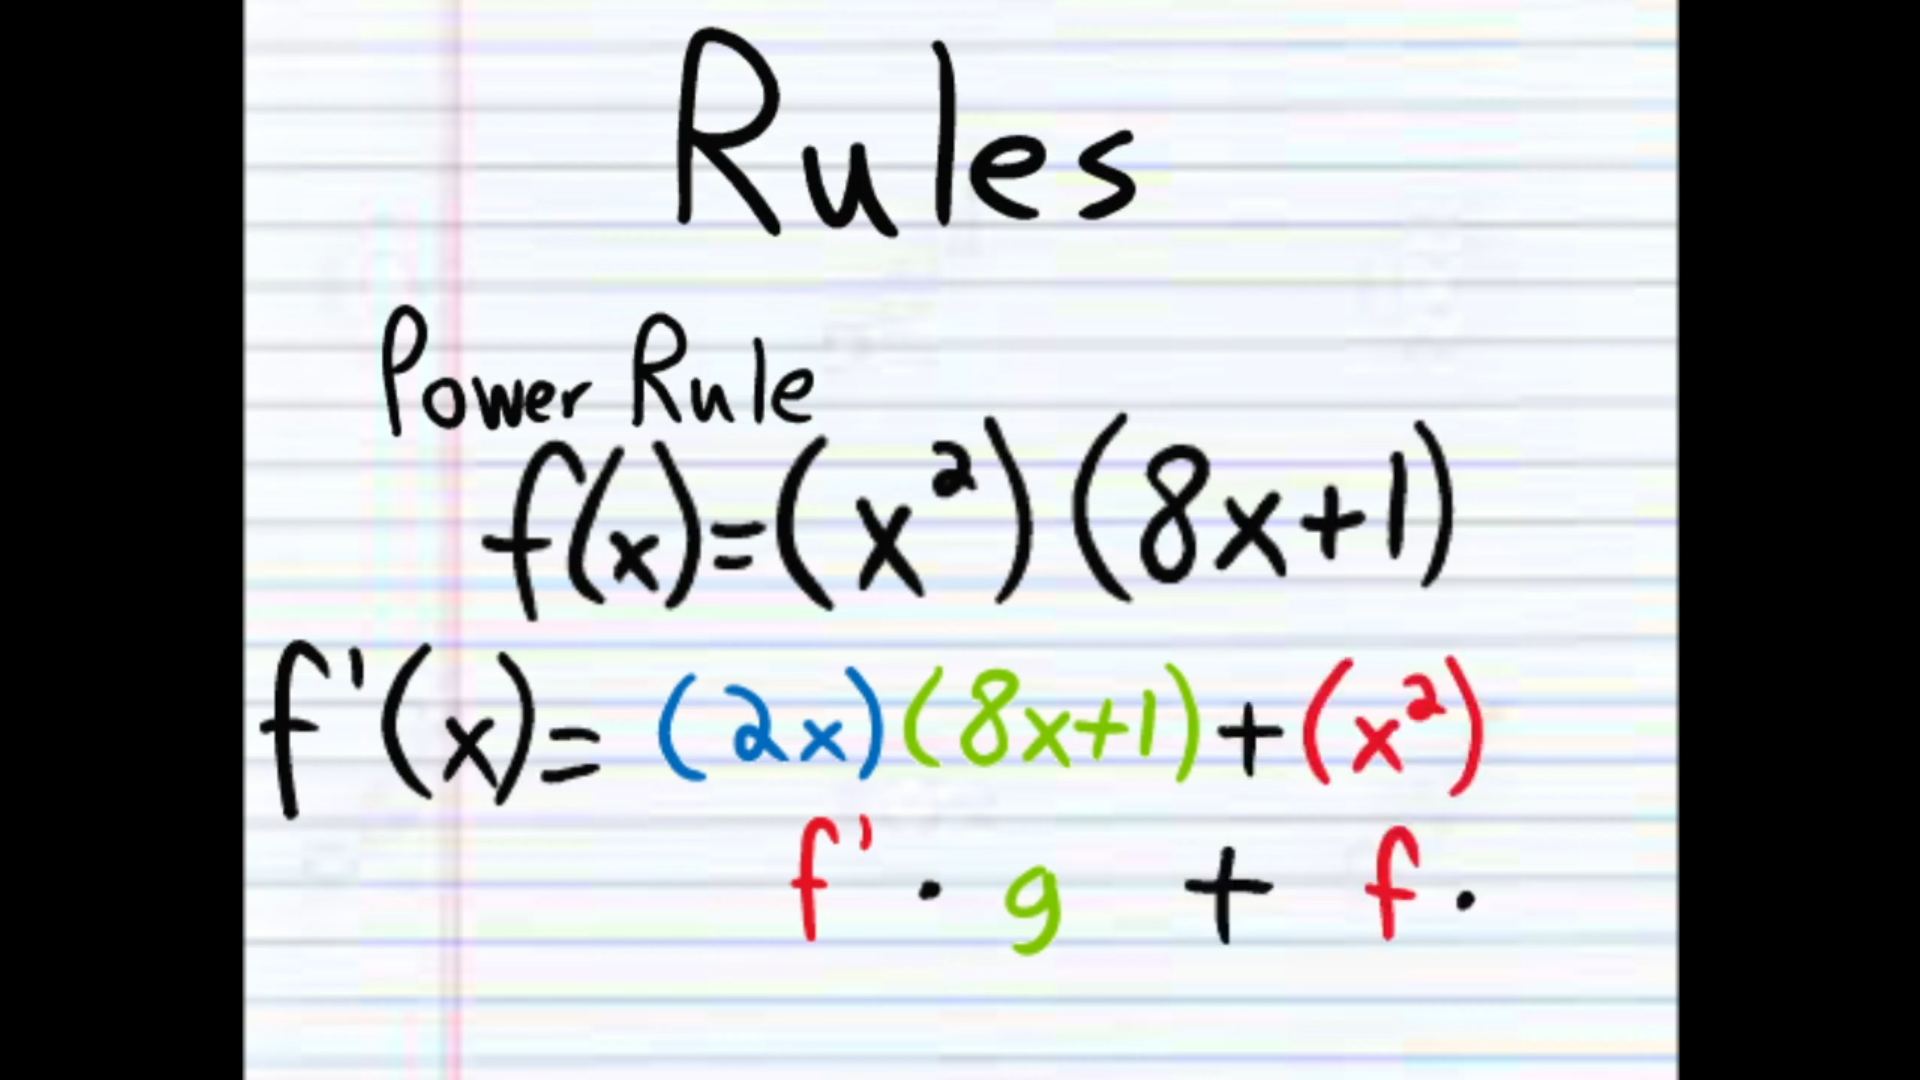 Rules
Power Rule
f(x)=(x²)(8x+1)
f'(x)= (2x)(8x+1)+(x²)
f' · g + f ·